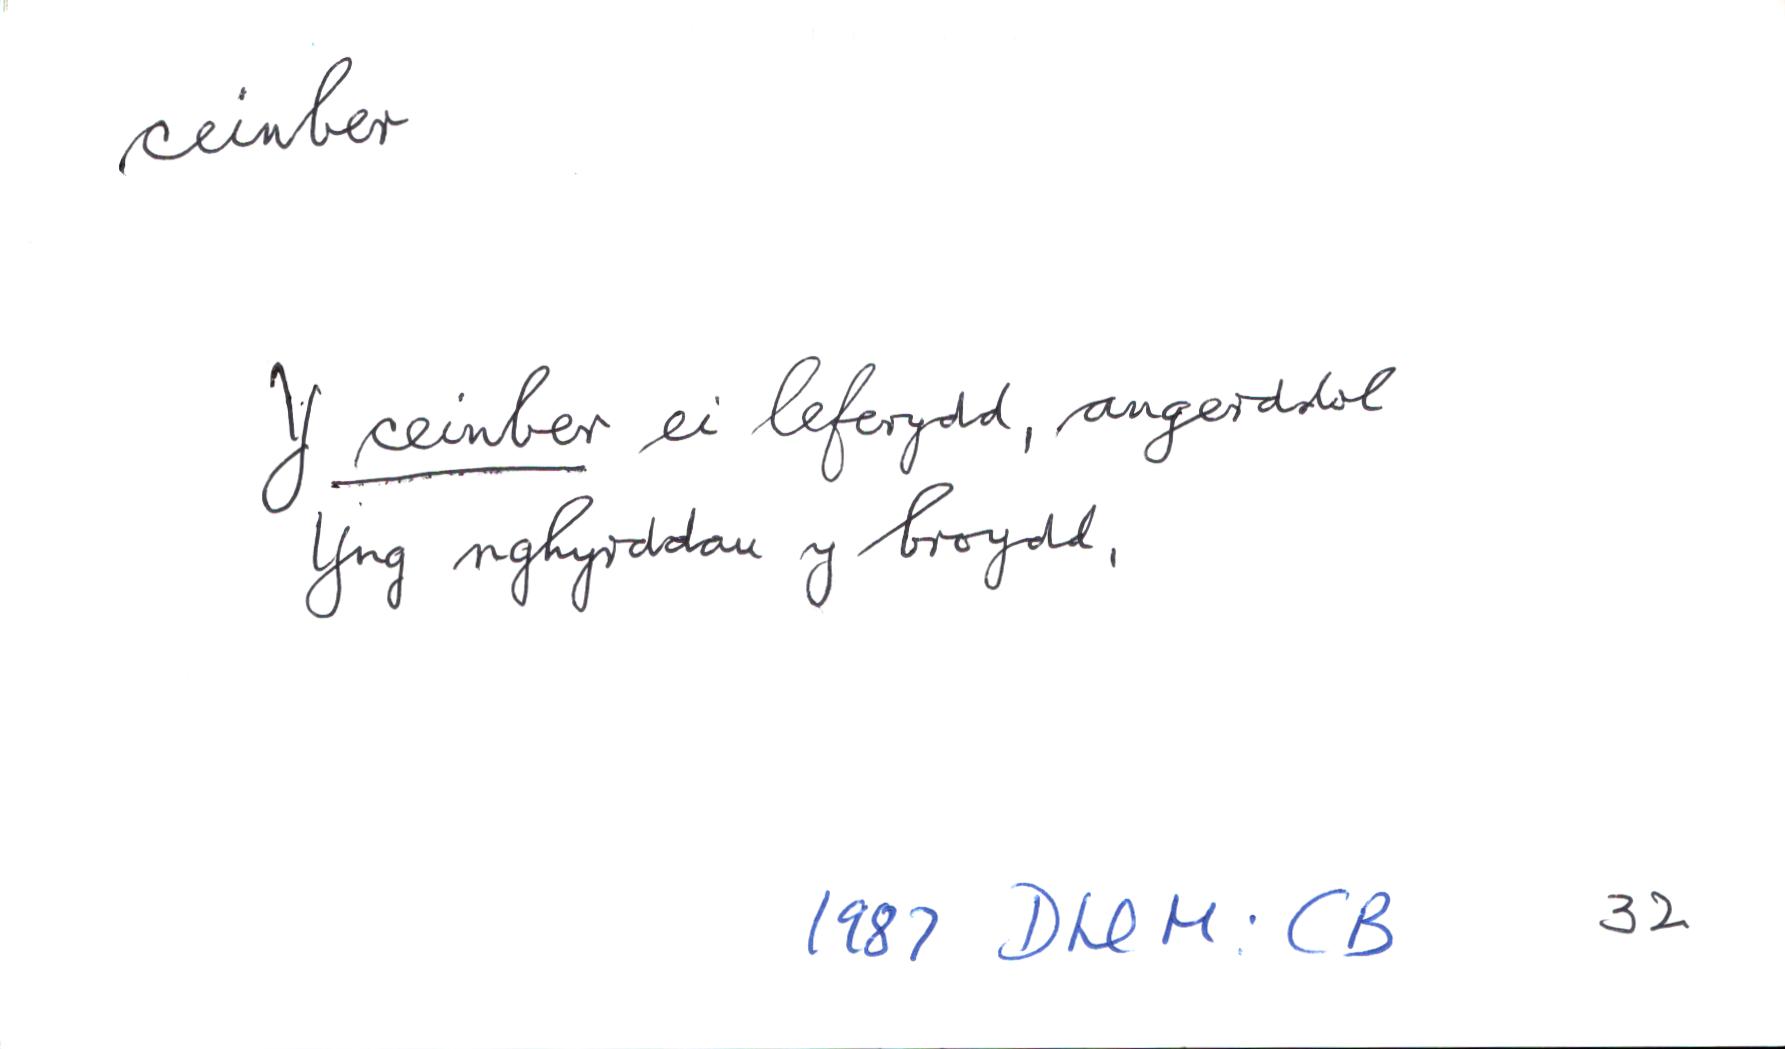 ceinber
Y ceinber ei leferydd, angerddol
Yng nghyrddau y broydd,
1987 DLlM: CB 32